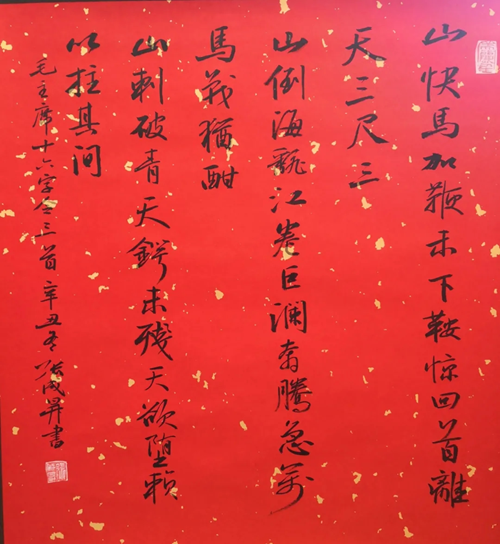 山快馬加鞭未下鞍惊回首離
天三尺三
山倒海翻江卷巨澜奔騰急万
馬战猶酣
山刺破青天鍔未殘天欲堕赖
以拄其间
毛主席十六字令三首辛丑冬書